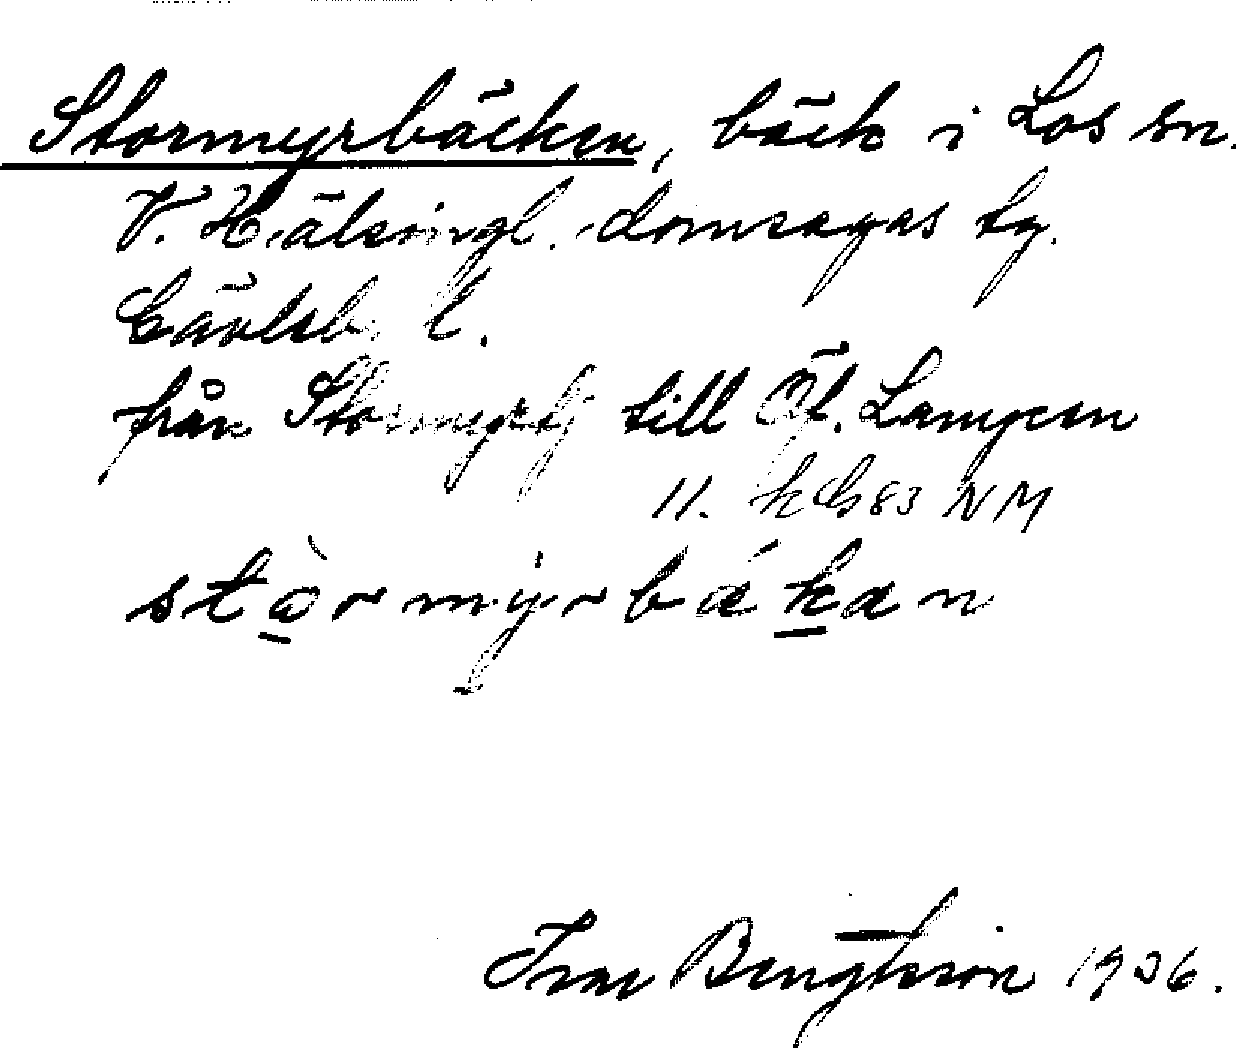 Stormyrbäcken, bäck i Los sn.
V. Hälsingl. domsagas tg.
Gävleb. l.
från Stormyrtj till Öf. Lampen
11. h G 83 NM
stòrmyrbákan
Ivar Bengtsson 1936.